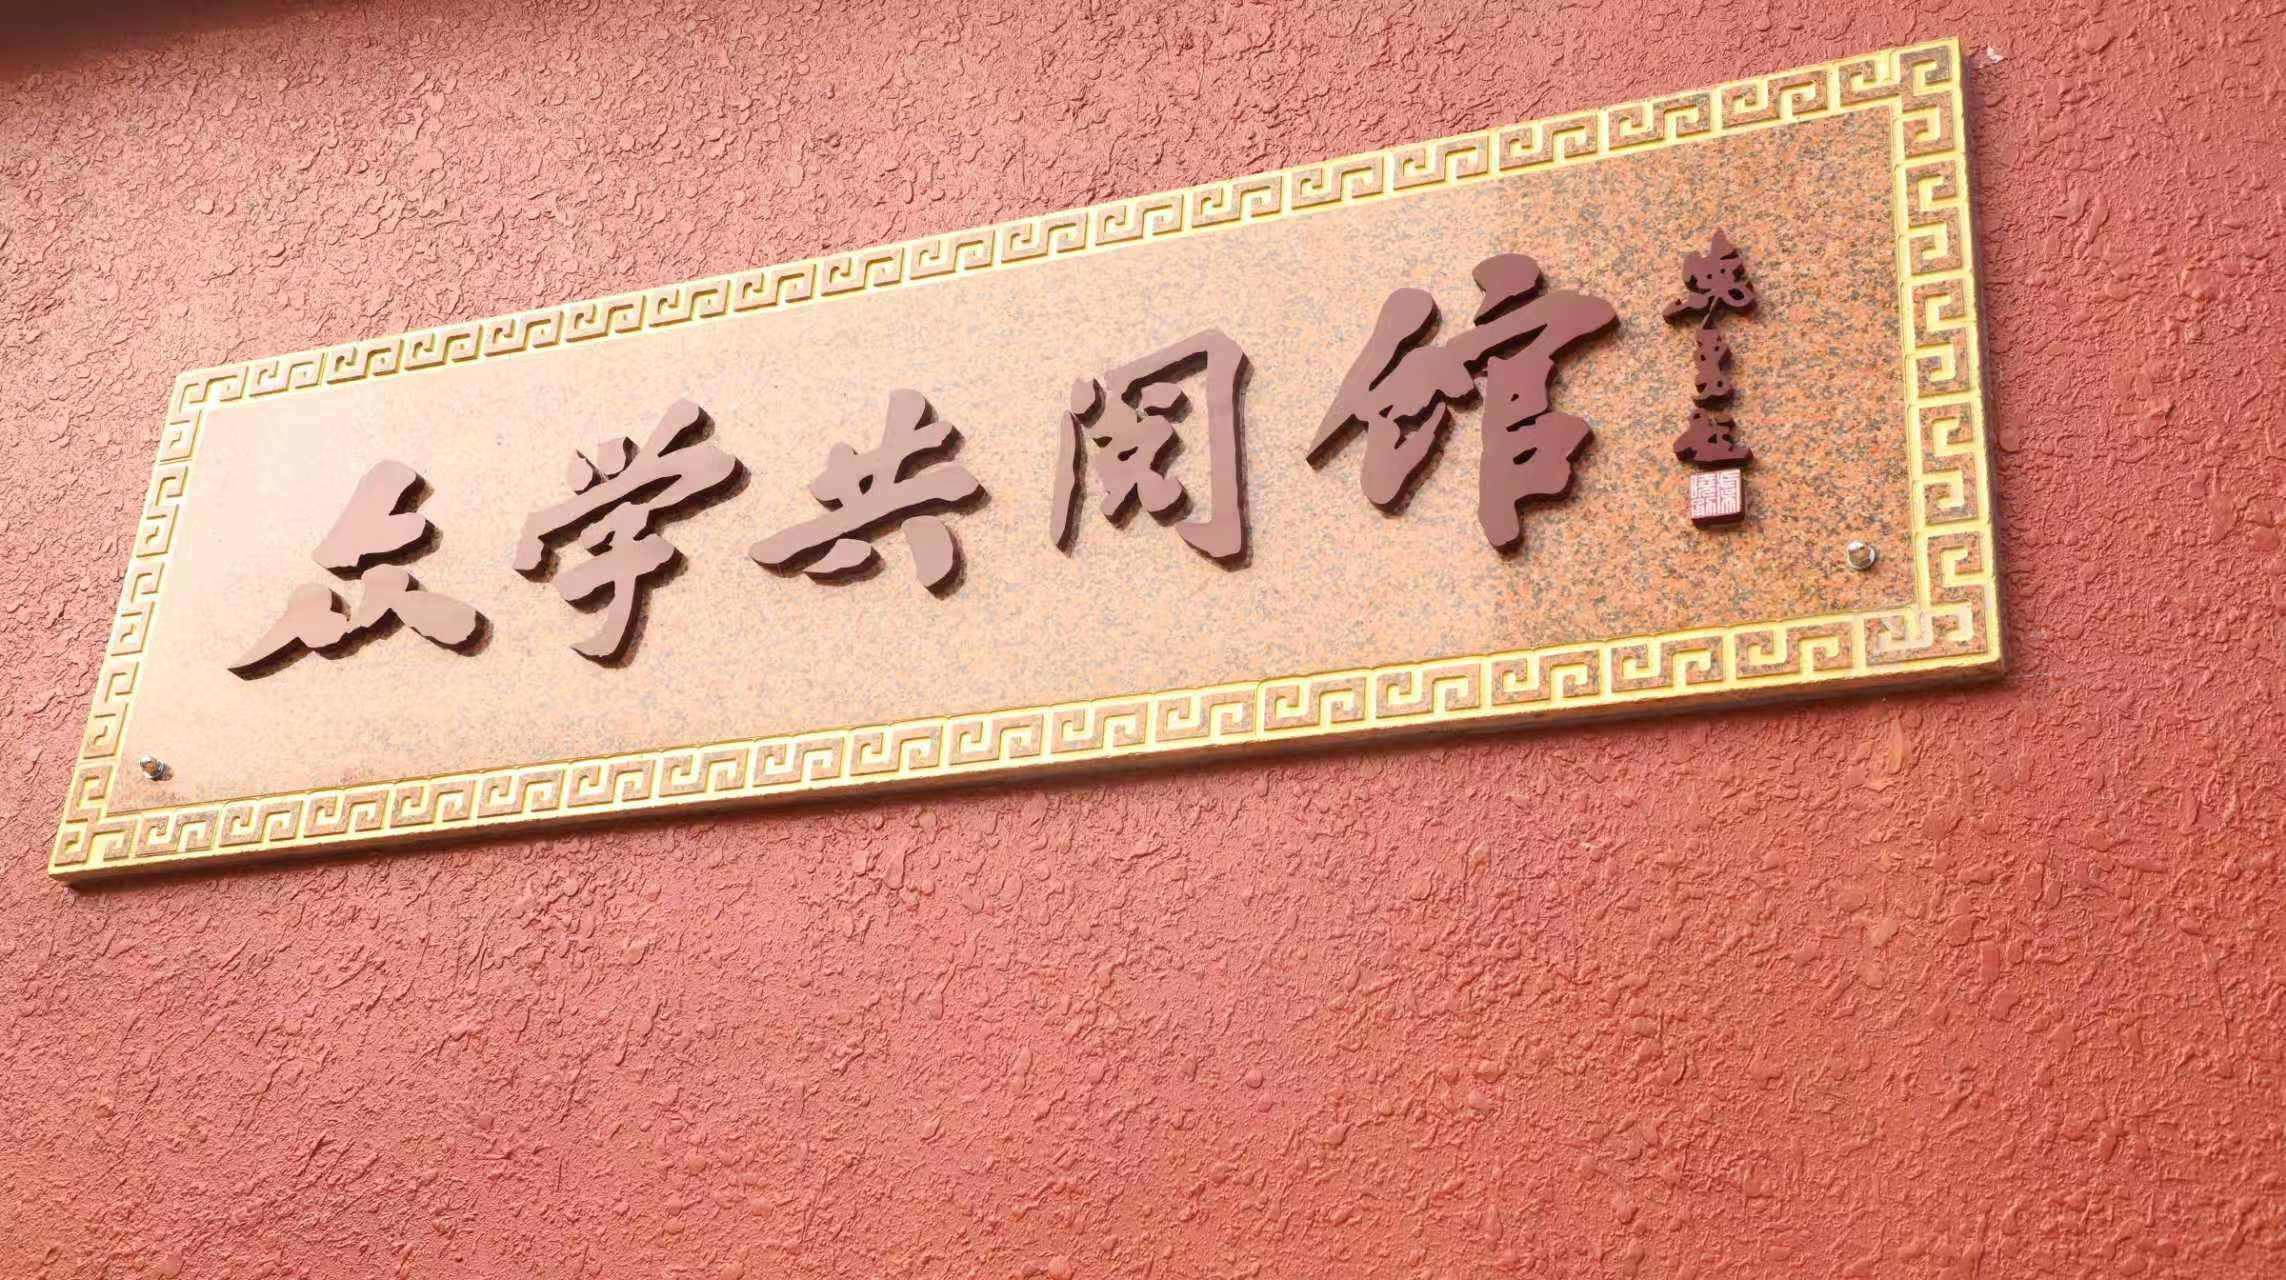 众学共阅馆